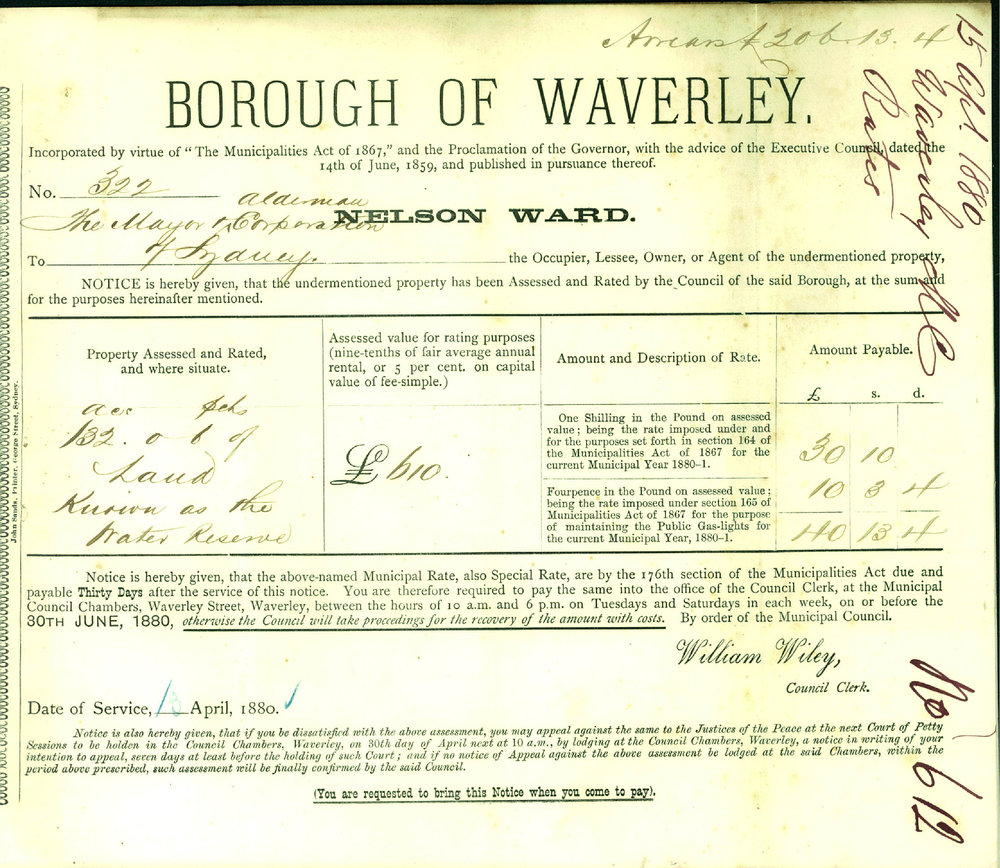 Arrears £ 206. 13. 4
15 Apl. 1880
Waverley
Rates
BOROUGH OF WAVERLEY.
Incorporated by virtue of "The Municipalities Act of 1867," and the Proclamation of the Governor, with the advice of the Executive Council, dated the
14th of June, 1859, and published in pursuance thereof.
No. 322
Alderman
The Mayor & Corporation
NELSON WARD.
To of Sydney. the Occupier, Lessee, Owner, or Agent of the undermentioned property,
NOTICE is hereby given, that the undermentioned property has been Assessed and Rated by the Council of the said Borough, at the sum and
for the purposes hereinafter mentioned.
Property Assessed and Rated,
and where situate.
Assessed value for rating purposes
(nine-tenths of fair average annual
rental, or 5 per cent. on capital
value of fee-simple.)
Amount and Description of Rate.
Amount Payable.
£ s. d.
acs pchs
132. 0 6 of
Land
Known as the
Water Reserve
£ 610.
One Shilling in the Pound on assessed
value; being the rate imposed under and
for the purposes set forth in section 164 of
the Municipalities Act of 1867 for the
current Municipal Year 1880-1.
30 10
Fourpence in the Pound on assessed value;
being the rate imposed under section 165 of
Municipalities Act of 1867 for the purpose
of maintaining the Public Gas-lights for
the current Municipal Year, 1880-1.
10 3 4
40 13 4
John Sands, Printer, George Street, Sydney.
Notice is hereby given, that the above-named Municipal Rate, also Special Rate, are by the 176th section of the Municipalities Act due and
payable Thirty Days after the service of this notice. You are therefore required to pay the same into the office of the Council Clerk, at the Municipal
Council Chambers, Waverley Street, Waverley, between the hours of 10 a.m. and 6 p.m. on Tuesdays and Saturdays in each week, on or before the
30TH JUNE, 1880, otherwise the Council will take proceedings for the recovery of the amount with costs. By order of the Municipal Council.
William Wiley,
Council Clerk.
Date of Service, April, 1880.
No 612
Notice is also hereby given, that if you be dissatisfied with the above assessment, you may appeal against the same to the Justices of the Peace at the next Court of Petty
Sessions to be holden in the Council Chambers, Waverley, on 30th day of April next at 10 a.m., by lodging at the Council Chambers, Waverley, a notice in writing of your
intention to appeal, seven days at least before the holding of such Court; and if no notice of Appeal against the above assessment be lodged at the said Chambers, within the
period above prescribed, such assessment will be finally confirmed by the said Council.
(You are requested to bring this Notice when you come to pay).